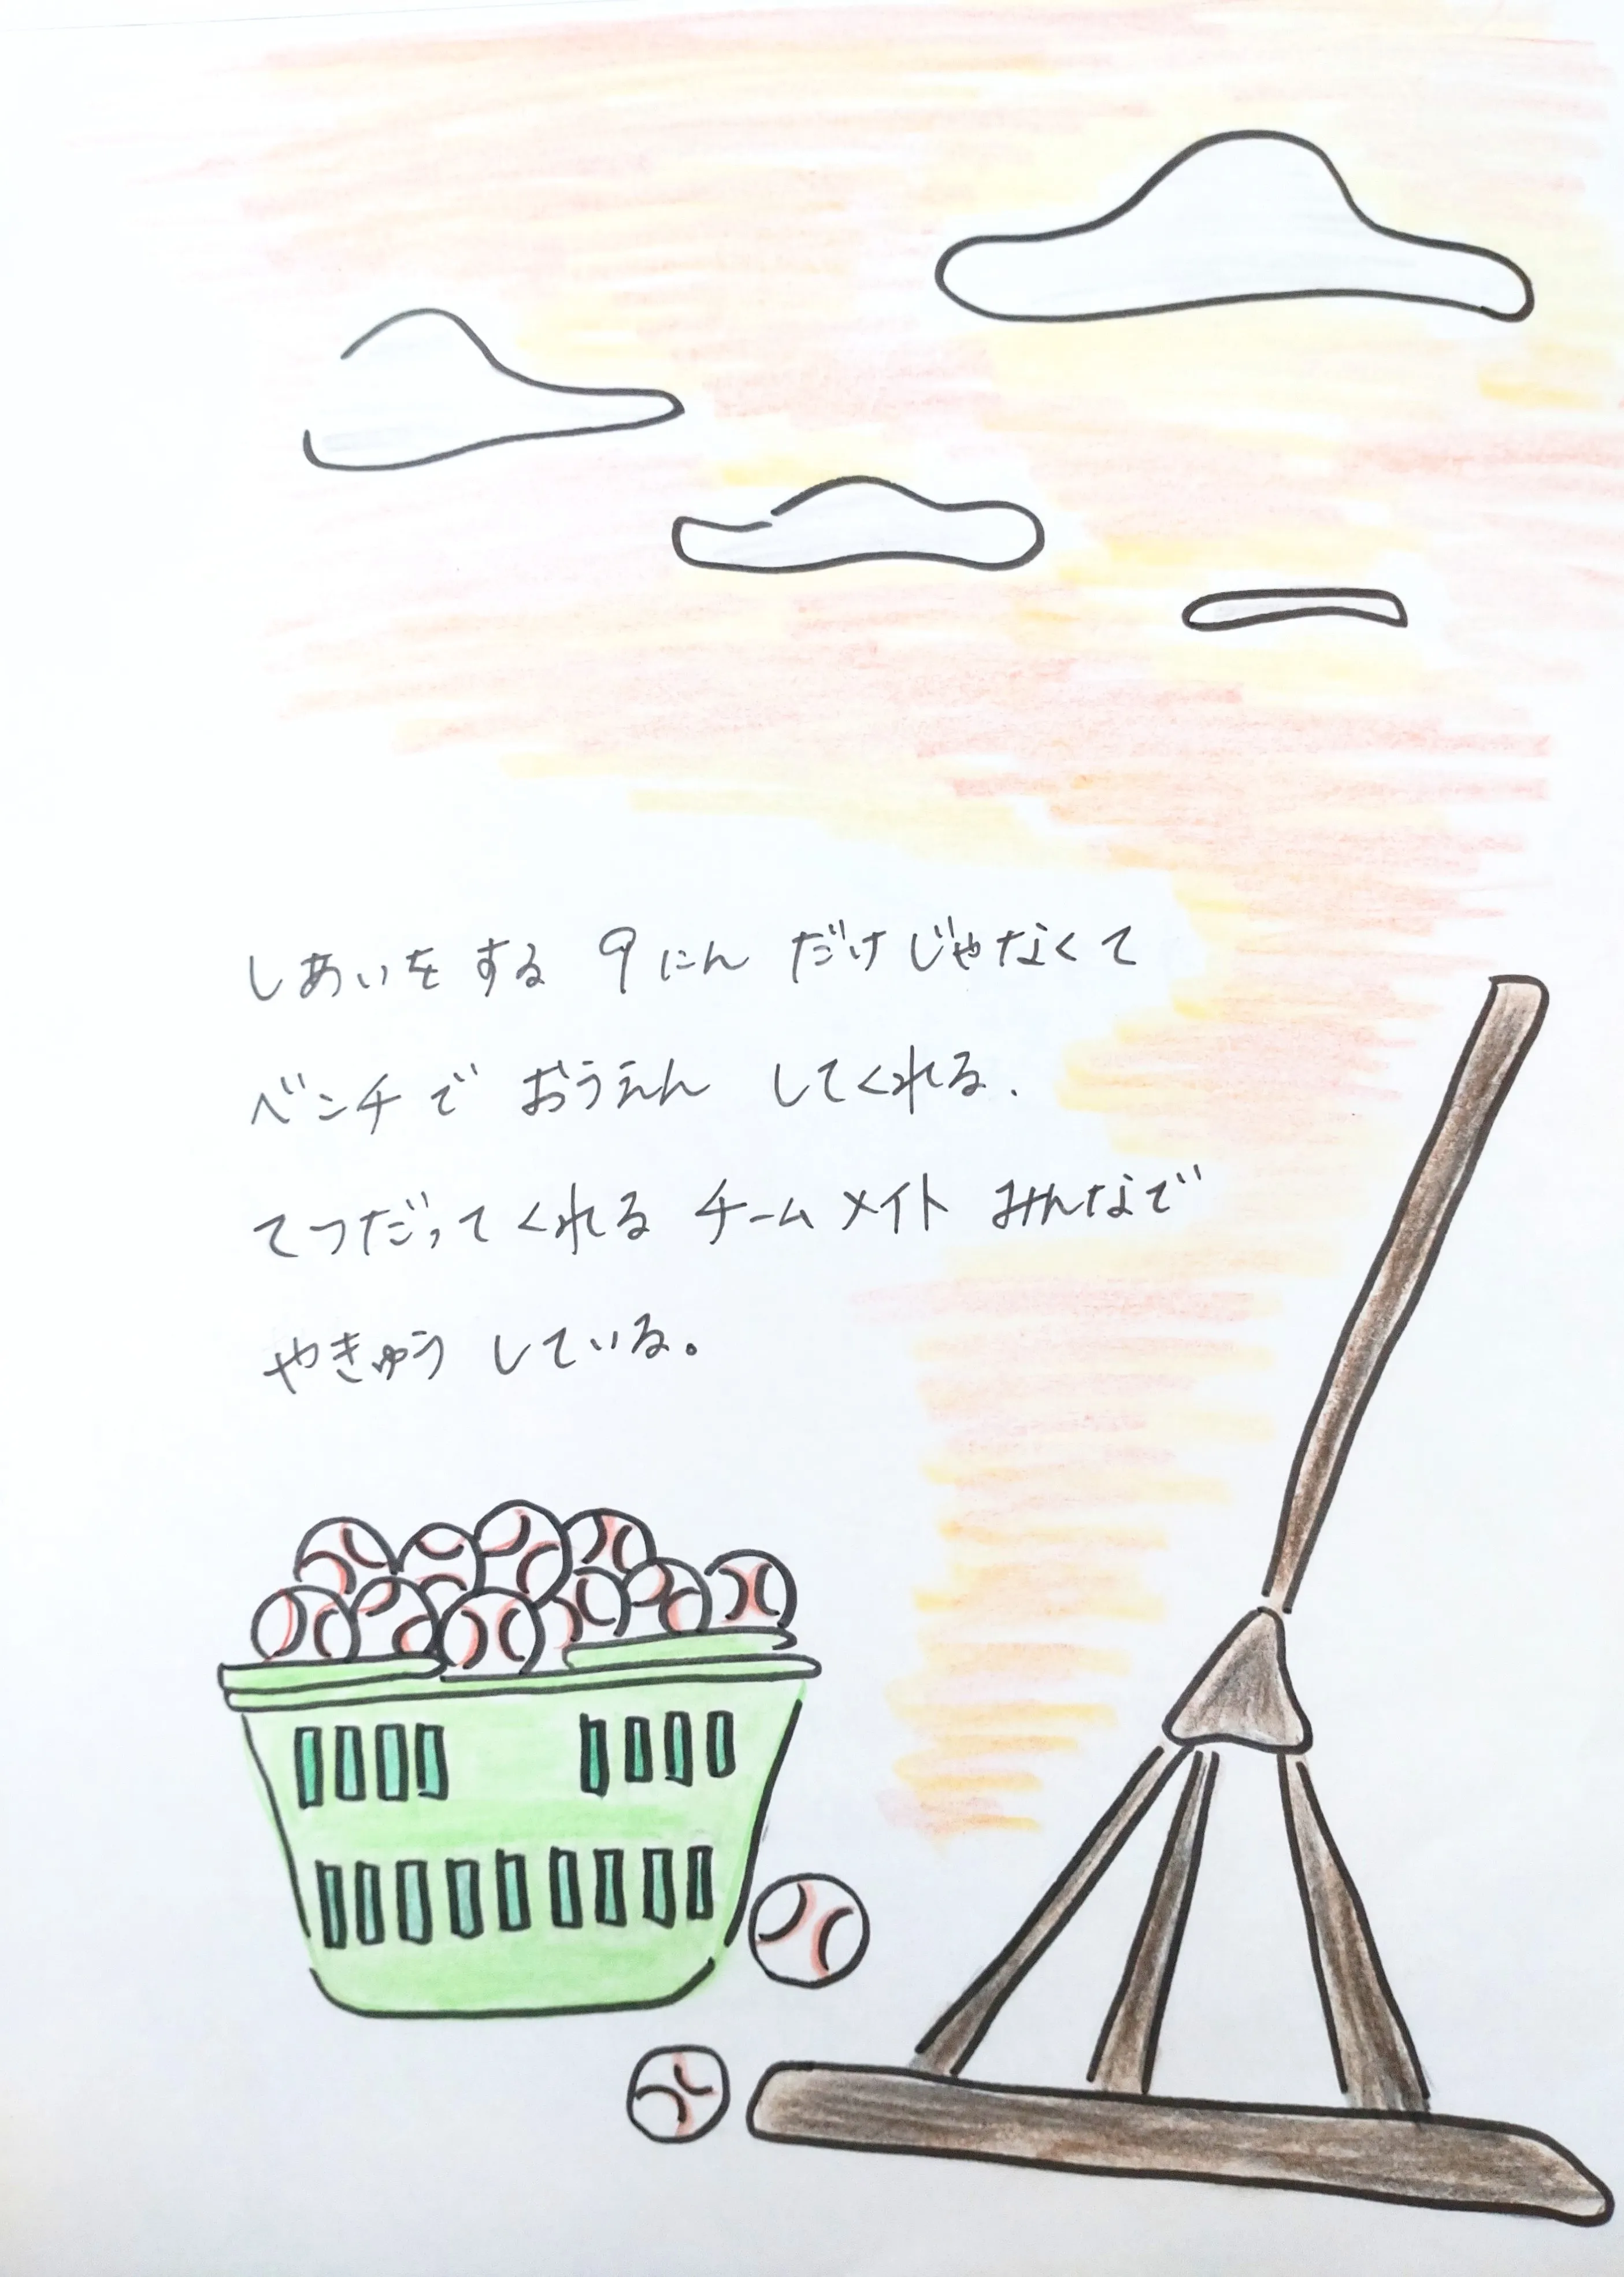 しあいを する 9にん だけじゃなくて
ベンチで おうえん してくれる.
てつだってくれる チームメイト みんなで
やきゅう している。